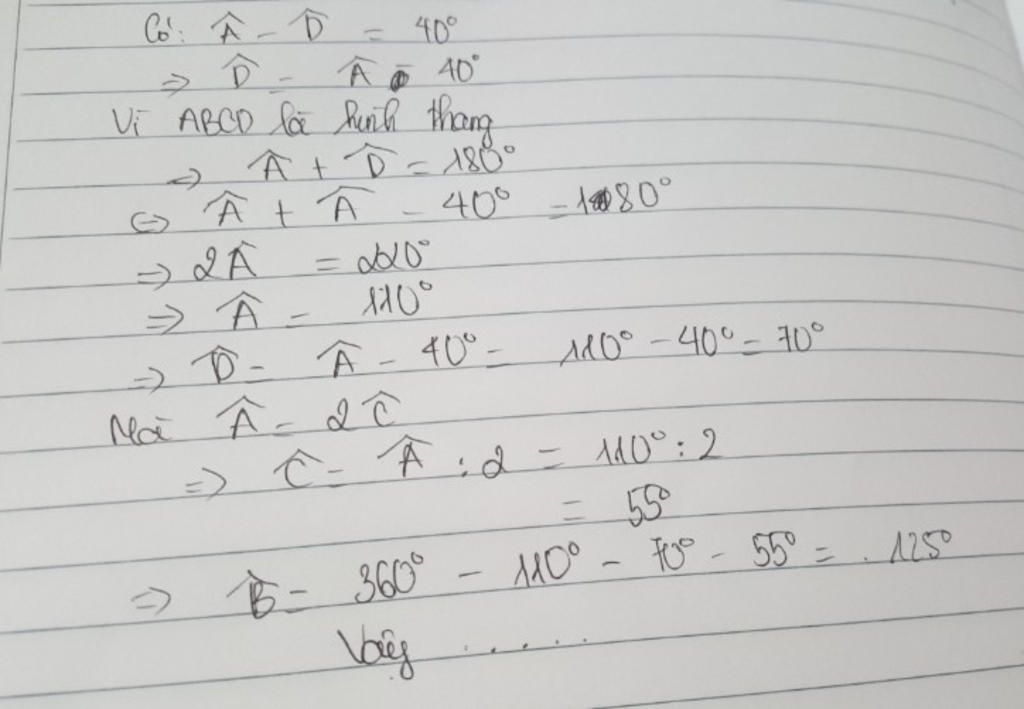 Có: Â - D̂ = 40°
=> D̂ = Â - 40°
Vì ABCD là hình thang
=> Â + D̂ = 180°
<=> Â + Â - 40° = 180°
=> 2Â = 220°
=> Â = 110°
=> D̂ = Â - 40° = 110° - 40° = 70°
Mà Â = 2Ĉ
=> Ĉ = Â : 2 = 110° : 2
= 55°
=> B̂ = 360° - 110° - 70° - 55° = 125°
Vậy .....